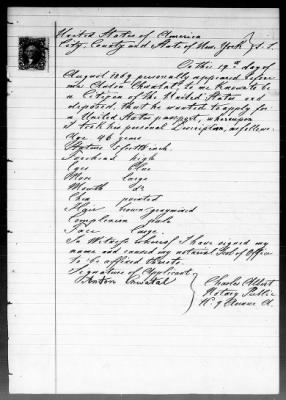 United States of America
City, County and State of New York } S.S.
On this 19th day of
August 1869 personally appeared before
me Anton Chrustal, to me known to be
a Citizen of the United States and
deposed, that he wanted to apply for
a United States passport, whereupon
I took his personal Description, as follows:
Age 46 years
Stature 5 feet inch.
Forehead high
Eyes blue
Nose large
Mouth do
Chin pointed
Hair brown-graymixed
Complexion pale
Face large.
In Witness whereof I have signed my
name and caused my notarial Seal of Office
to be affixed hereto.
Signature of Applicant
Anton
Charles Albert
Notary Public
N. 9 Avenue A.